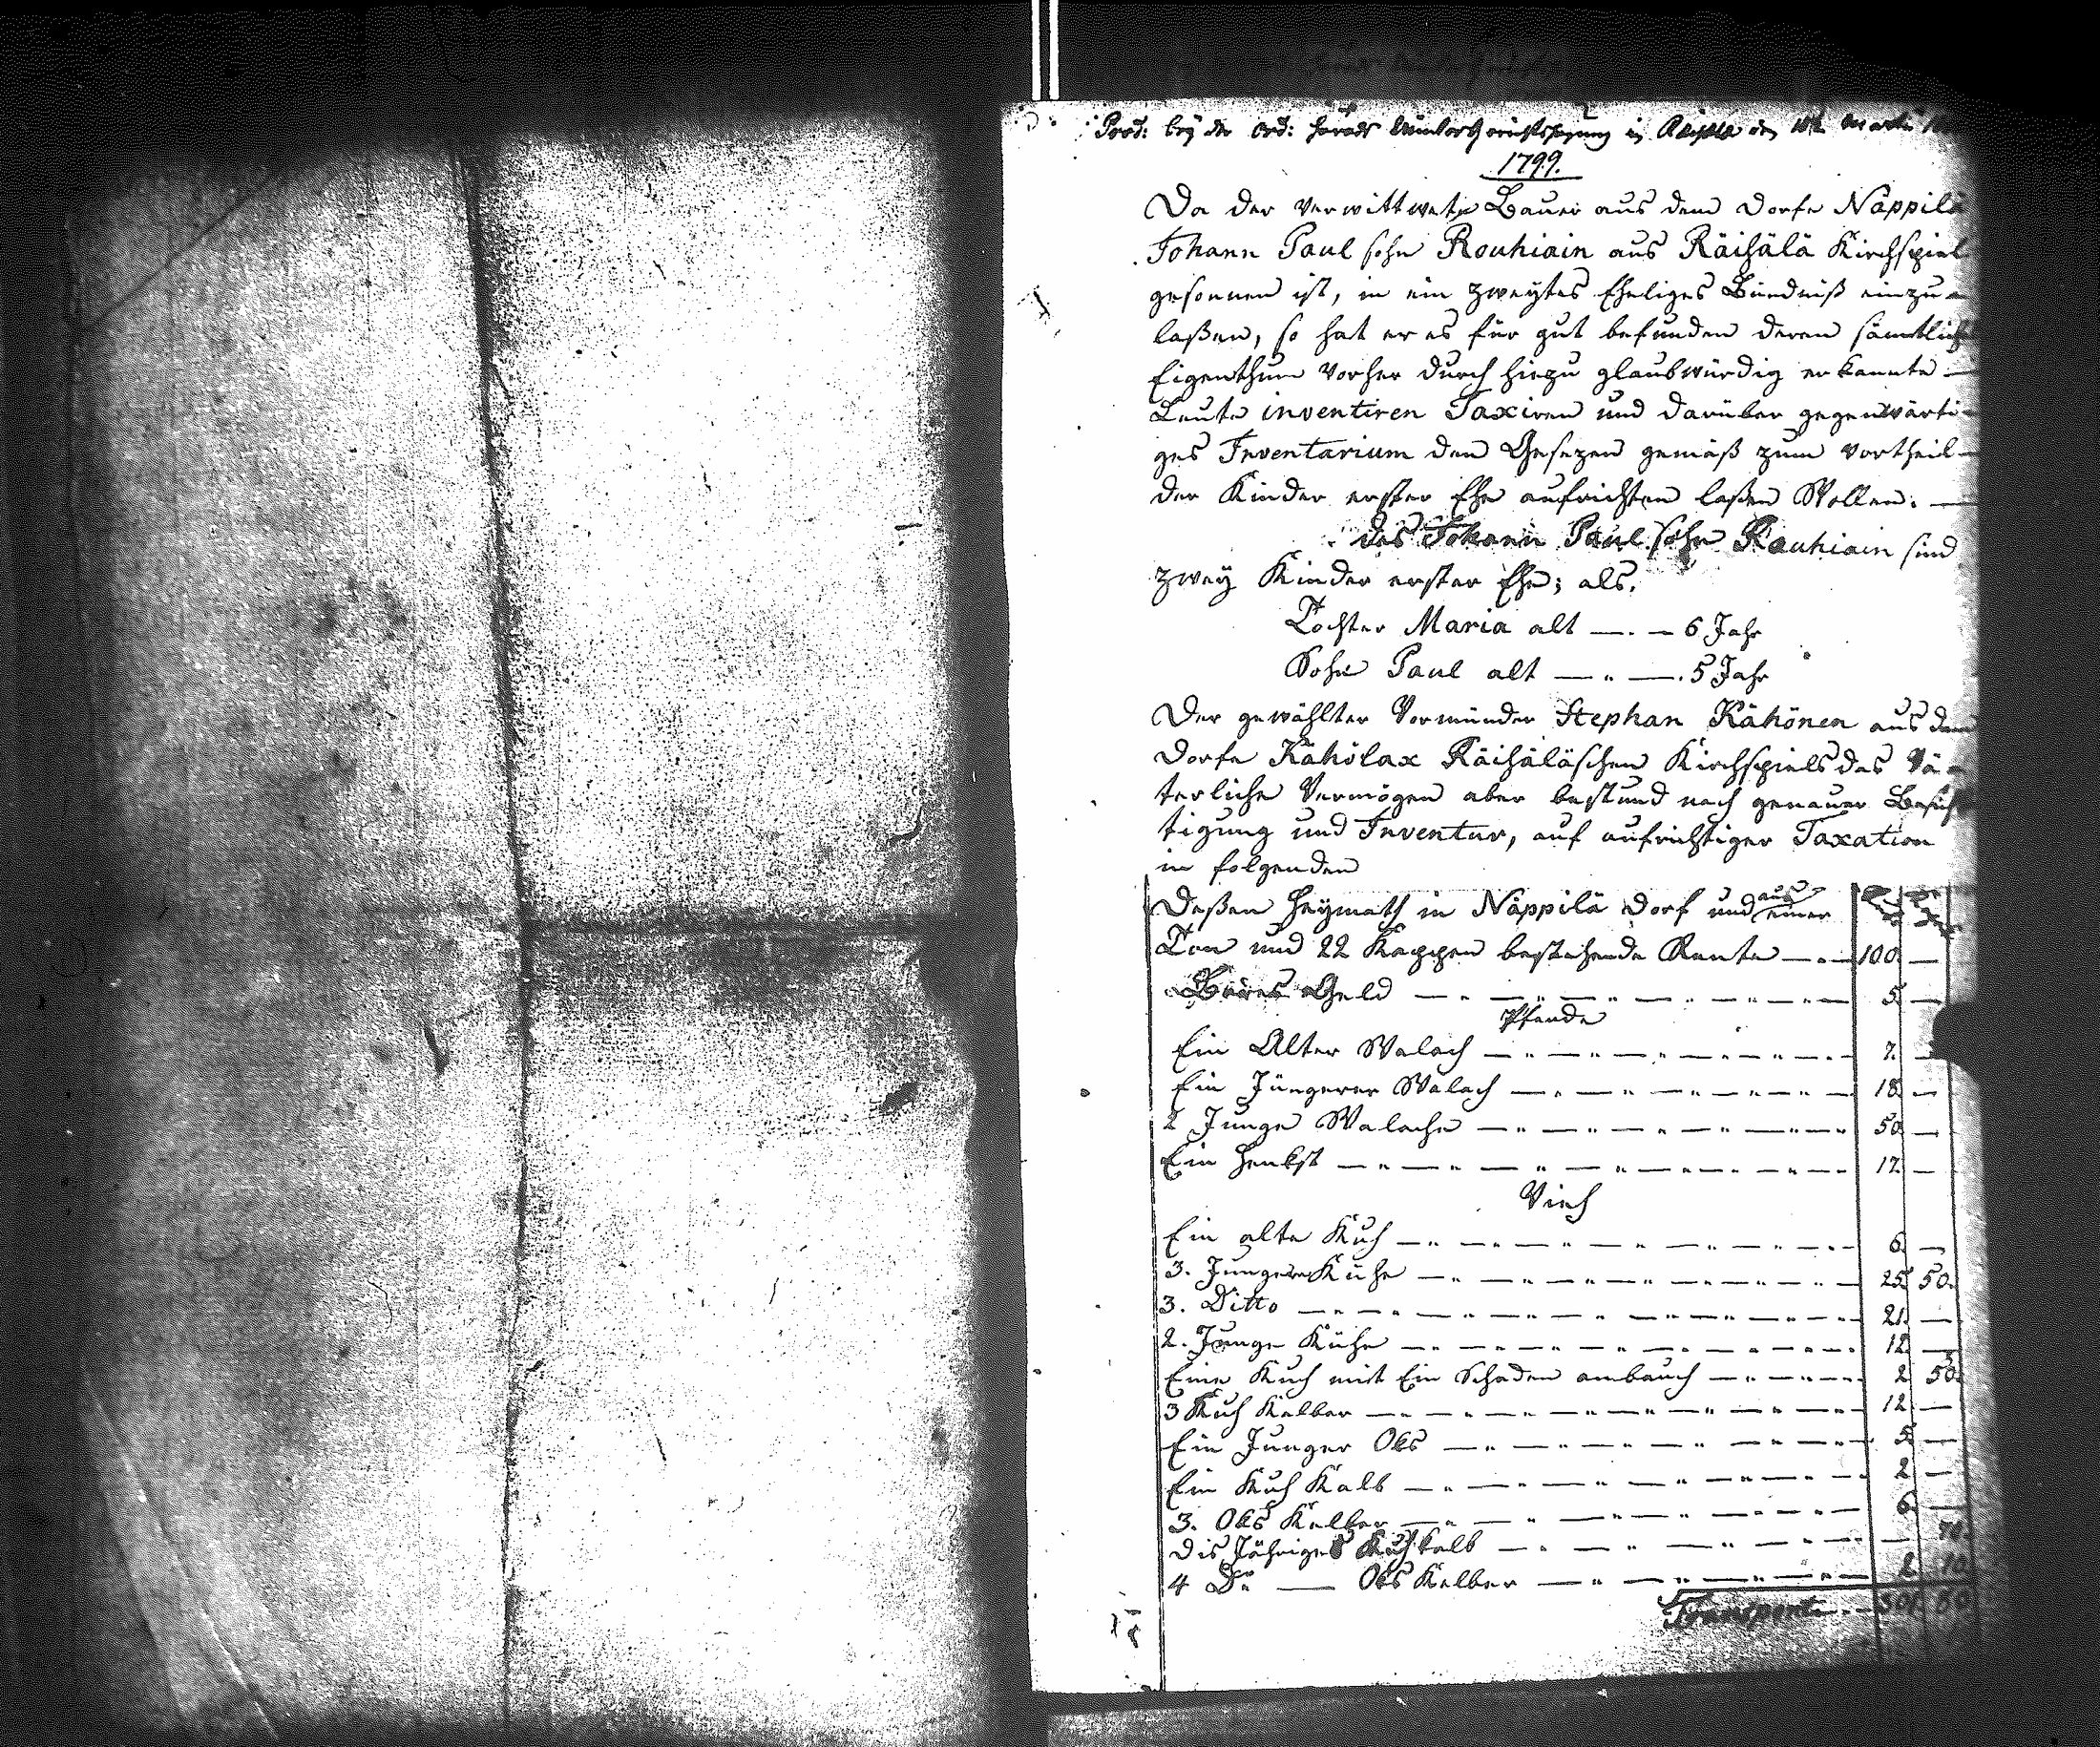 Prod: bey der ord: Härads Winter Gerichtshegung in Räisälä den Martii
1799.
Da der verwittwete Bauer aus dem Dorfe Näppilä
Johann Paul sohn Rouhiain aus Räisälä Kirchspiel
gesonnen ist, in ein zweytes Eheliges Bündniß einzu-
laßen, so hat er es für gut befunden deren sämtliche
Eigenthum vorher durch hiezu glaubwürdig erkannte
Leute inventiren Taxiren und darüber gegenwärti-
ges Inventarium den Gesezen gemäß zum vortheil
der Kinder erster Ehe aufrichten laßen Wollen.
Des Johann Paul sohn Rauhiain sind
zwey Kinder erster Ehe; als.
Tochter Maria alt — . — 6 Jahr
Sohn Paul alt — " — . 5 Jahr
Der gewählter Vormünder Stephan Kähönen aus dem
Dorfe Kähölax Räisäläschen Kirchspiels das Vä-
terliche Vermögen aber bestund nach genauer Besich
tigung und Inventur, auf aufrichtiger Taxation
in folgenden
Deßen Heymath in Näppilä Dorf und aus einer
Ton und 22 Kappen bestehende Rente — 100 —
Bares Geld — 5 —
Pferde
Ein Alter Walach — 7. —
Ein Jüngerer Walach — 18 —
2 Junge Walache — 50 —
Ein Henkst — 17 —
Vieh
Ein alte Kuh — 6. —
3. Jungere Kühe — 25 50.
3. Ditto — 21. —
2. Junge Kühe — 12 —
Eine Kuh mit Ein Schaden am bauch — 2 50.
3 Kuh Kelber — 12 —
Ein Junger Oks — 5 —
Ein Kuh Kalb — 2 —
3. Oks Kelber — 6 —
Dis Jähriges Kuh kalb — 70.
4 Do — Oks Kelber — 2 10
Transport